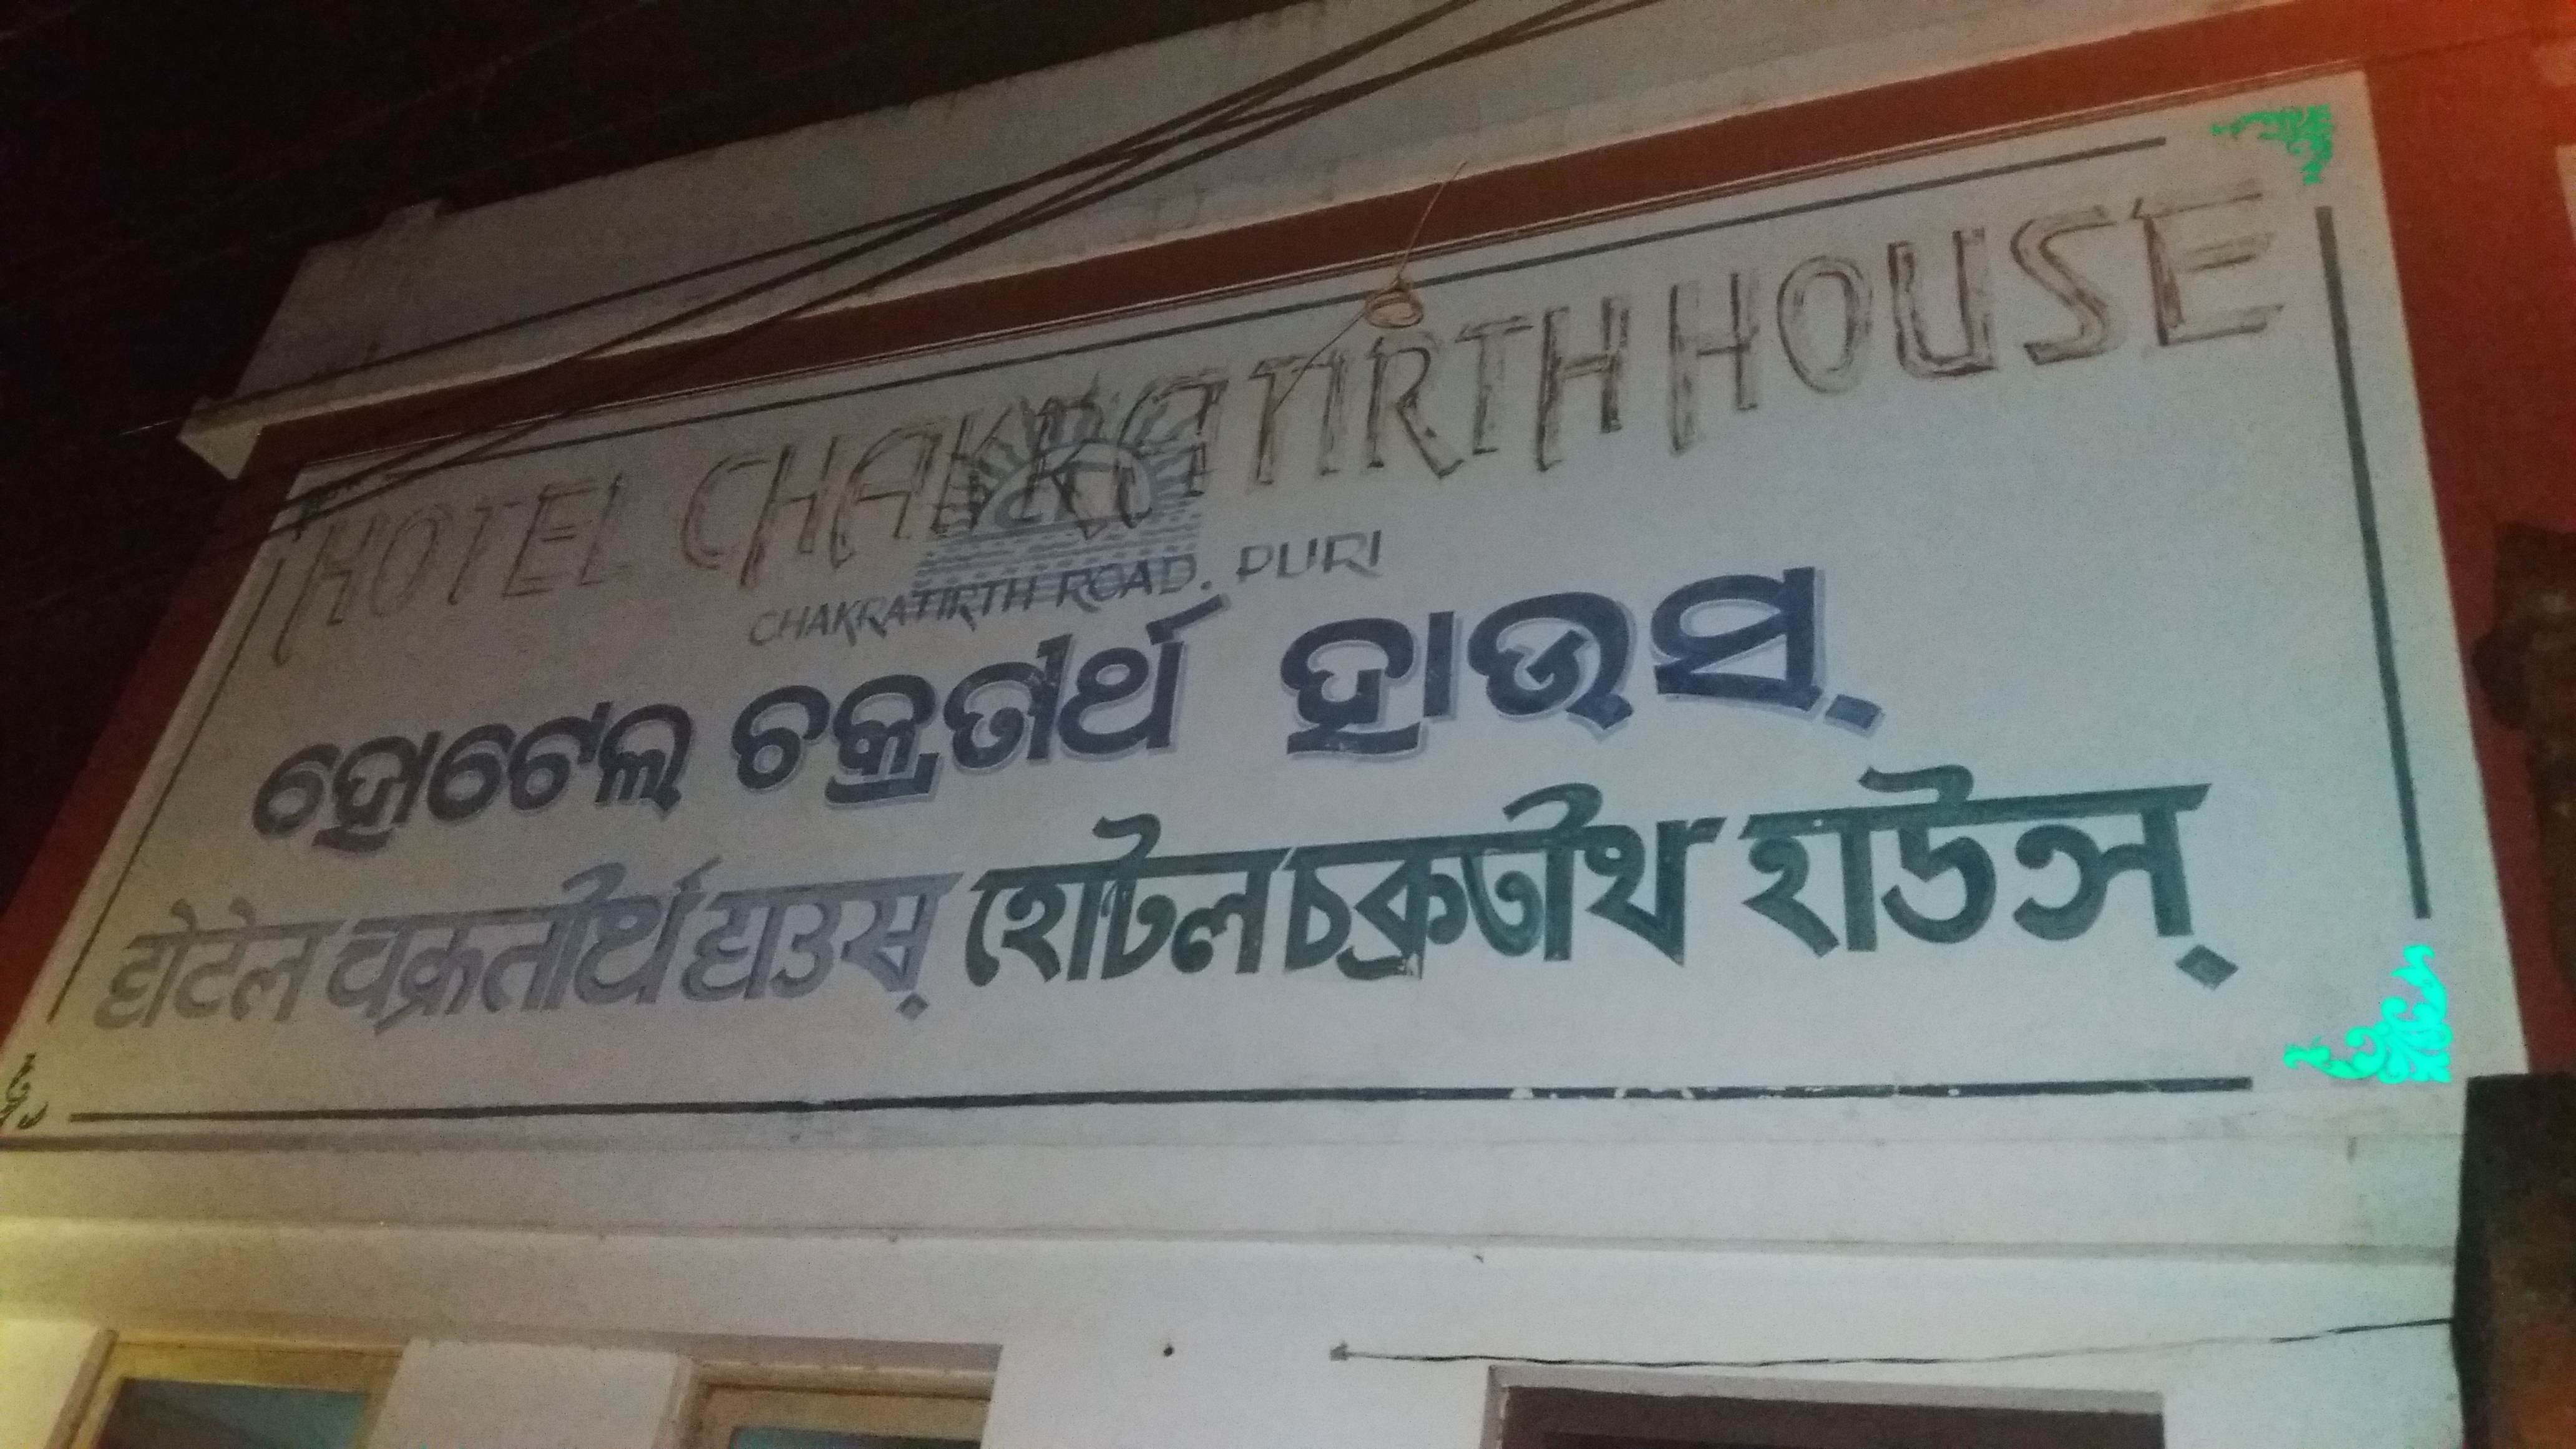 HOTEL CHAKRATIRTH HOUSE
CHAKRATIRTH ROAD. PURI
ହୋଟେଲ ଚକ୍ରତୀର୍ଥ ହାଉସ୍
होटेल चक्रतीर्थ हाउस् হোটেল চক্রতীর্থ হাউস্